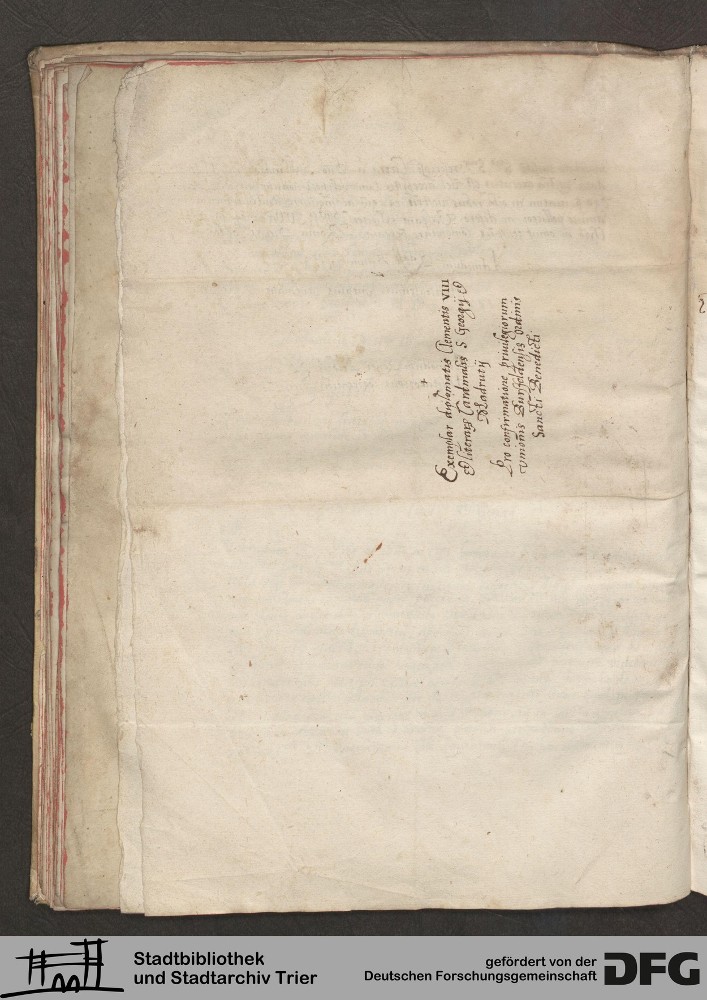 Exemplar diplomatis Clementis VIII
& literarũ Cardinalis S Georgij &
Madrutij
Pro confirmatione priuilegiorum
Vnionis Bursfeldensis Ordinis
Sancti Benedicti
Stadtbibliothek
und Stadtarchiv Trier
gefördert von der
Deutschen Forschungsgemeinschaft
DFG